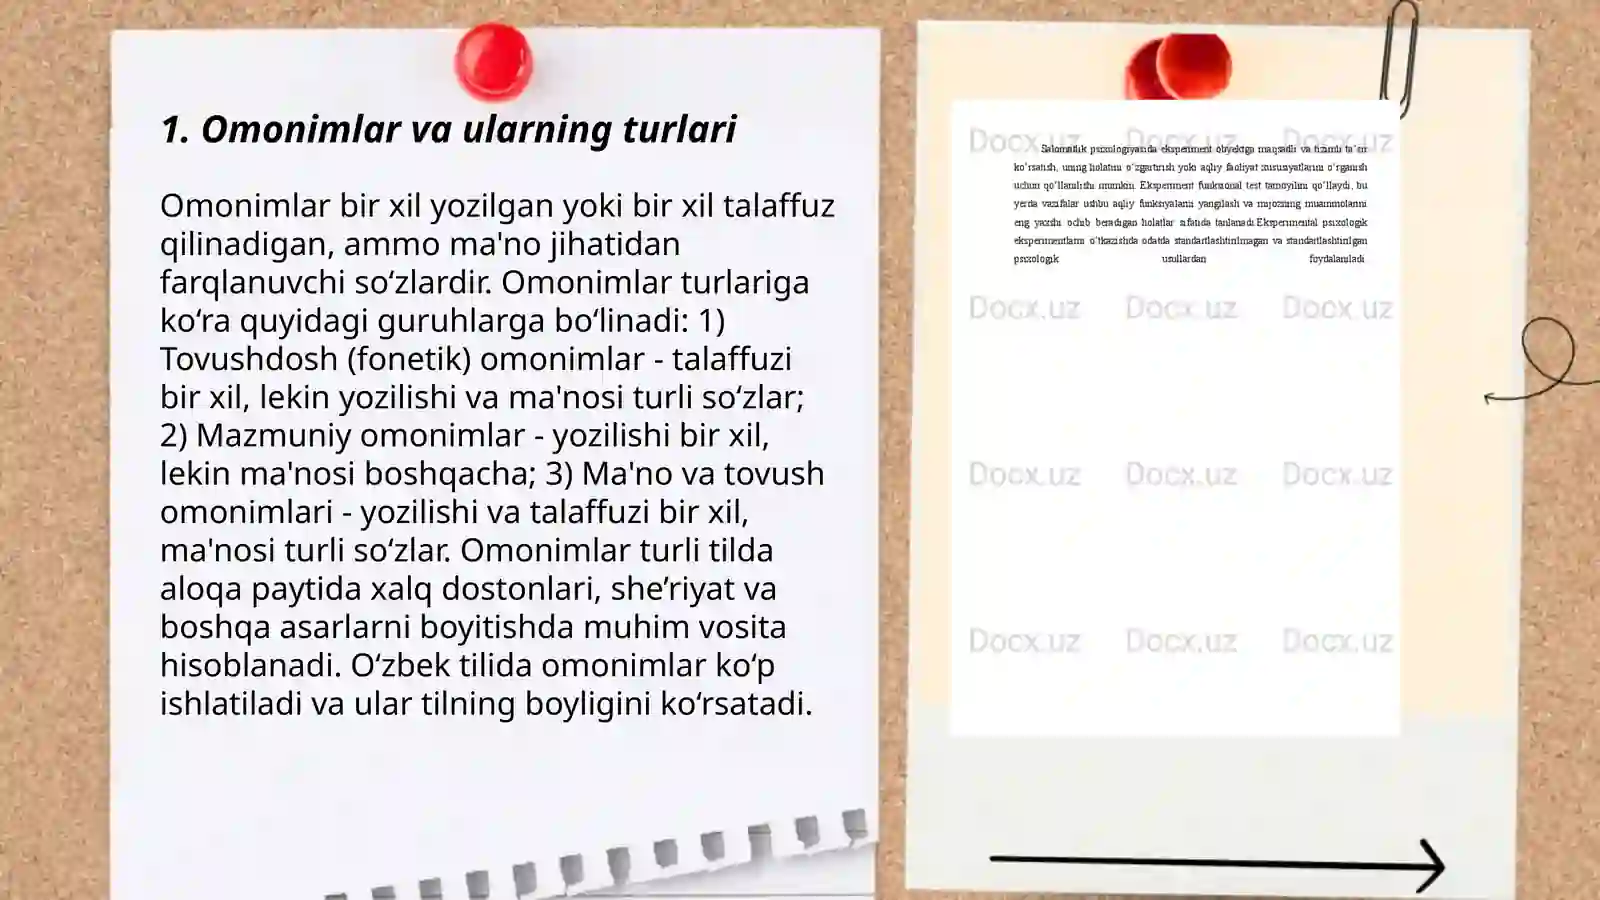 1. Omonimlar va ularning turlari
Omonimlar bir xil yozilgan yoki bir xil talaffuz
qilinadigan, ammo ma'no jihatidan
farqlanuvchi so‘zlardir. Omonimlar turlariga
ko‘ra quyidagi guruhlarga bo‘linadi: 1)
Tovushdosh (fonetik) omonimlar - talaffuzi
bir xil, lekin yozilishi va ma'nosi turli so‘zlar;
2) Mazmuniy omonimlar - yozilishi bir xil,
lekin ma'nosi boshqacha; 3) Ma'no va tovush
omonimlari - yozilishi va talaffuzi bir xil,
ma'nosi turli so‘zlar. Omonimlar turli tilda
aloqa paytida xalq dostonlari, she’riyat va
boshqa asarlarni boyitishda muhim vosita
hisoblanadi. O‘zbek tilida omonimlar ko‘p
ishlatiladi va ular tilning boyligini ko‘rsatadi.
Docx.uz Docx.uz Docx.uz
Salomatlik psixologiyasida eksperiment obyektga maqsadli va tizimli ta’sir
ko‘rsatish, uning holatini o‘zgartirish yoki aqliy faoliyat xususiyatlarini o‘rganish
uchun qo‘llanilishi mumkin. Eksperiment funksional test tamoyilini qo‘llaydi, bu
yerda vazifalar ushbu aqliy funksiyalarni yangilash va mijozning muammolarini
eng yaxshi ochib beradigan holatlar sifatida tanlanadi.Eksperimental psixologik
eksperimentlarni o‘tkazishda odatda standartlashtirilmagan va standartlashtirilgan
psixologik usullardan foydalaniladi.
Docx.uz Docx.uz Docx.uz
Docx.uz Docx.uz Docx.uz
Docx.uz Docx.uz Docx.uz